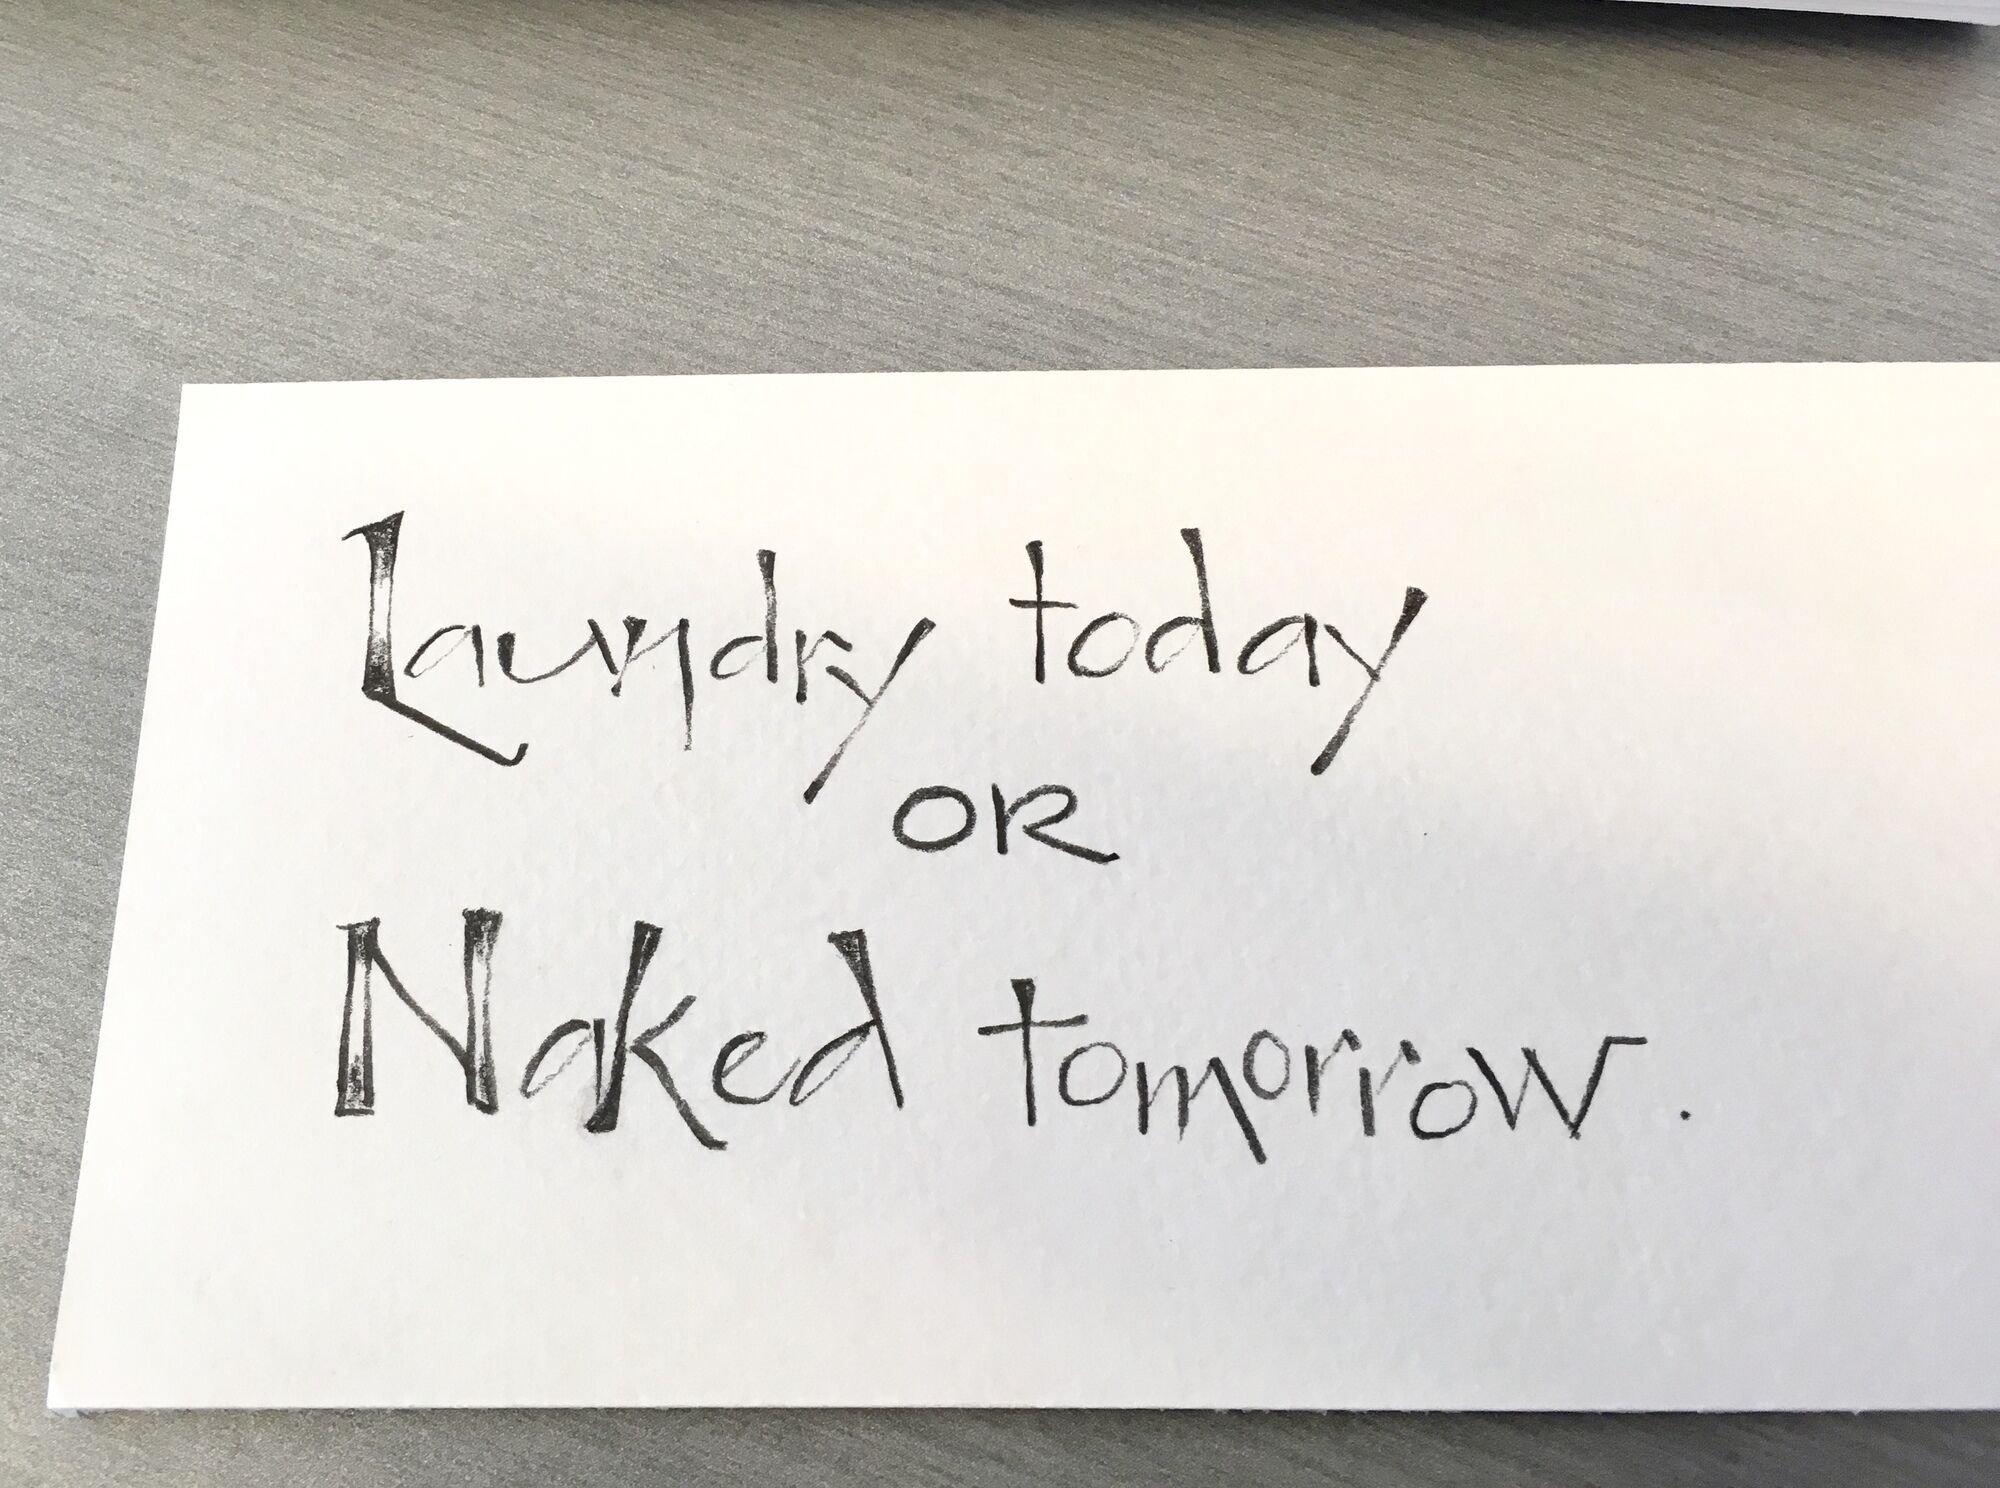 Laundry today
OR
Naked tomorrow.